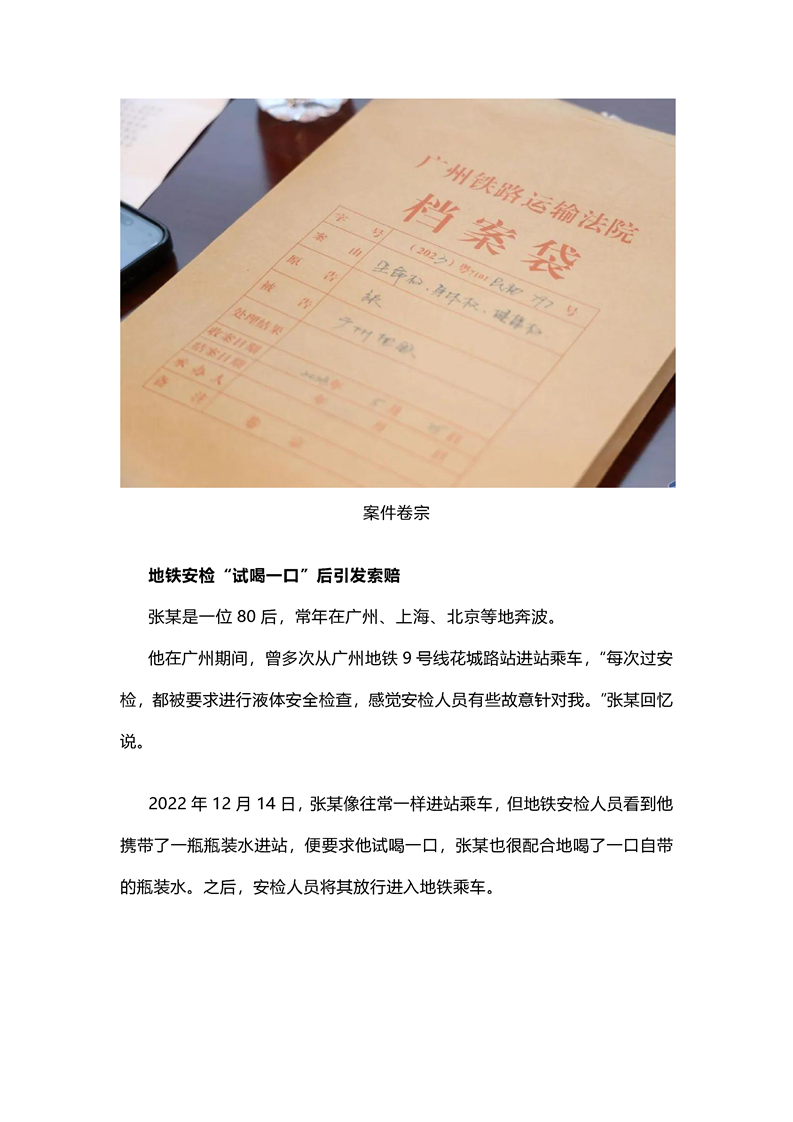 广州铁路运输法院
档案袋
字 号 (2023)粤7101民初 797 号
案 由 生命权、身体权、健康权
原 告 张
被 告 广州地铁
处理结果
收案日期 年 5月 日
结案日期 年 月 日
承办人
备 注
卷 宗
案件卷宗
地铁安检“试喝一口”后引发索赔
张某是一位 80 后，常年在广州、上海、北京等地奔波。
他在广州期间，曾多次从广州地铁 9 号线花城路站进站乘车，“每次过安
检，都被要求进行液体安全检查，感觉安检人员有些故意针对我。”张某回忆
说。
2022 年 12 月 14 日，张某像往常一样进站乘车，但地铁安检人员看到他
携带了一瓶瓶装水进站，便要求他试喝一口，张某也很配合地喝了一口自带
的瓶装水。之后，安检人员将其放行进入地铁乘车。